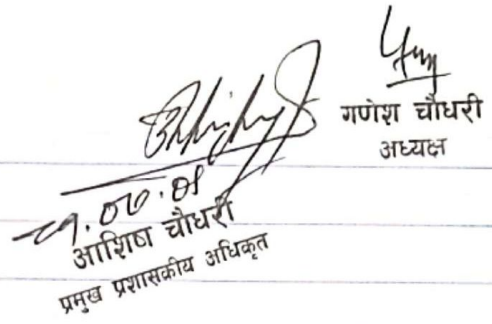 गणेश चौधरी
अध्यक्ष
आशिष चौधरी
प्रमुख प्रशासकीय अधिकृत